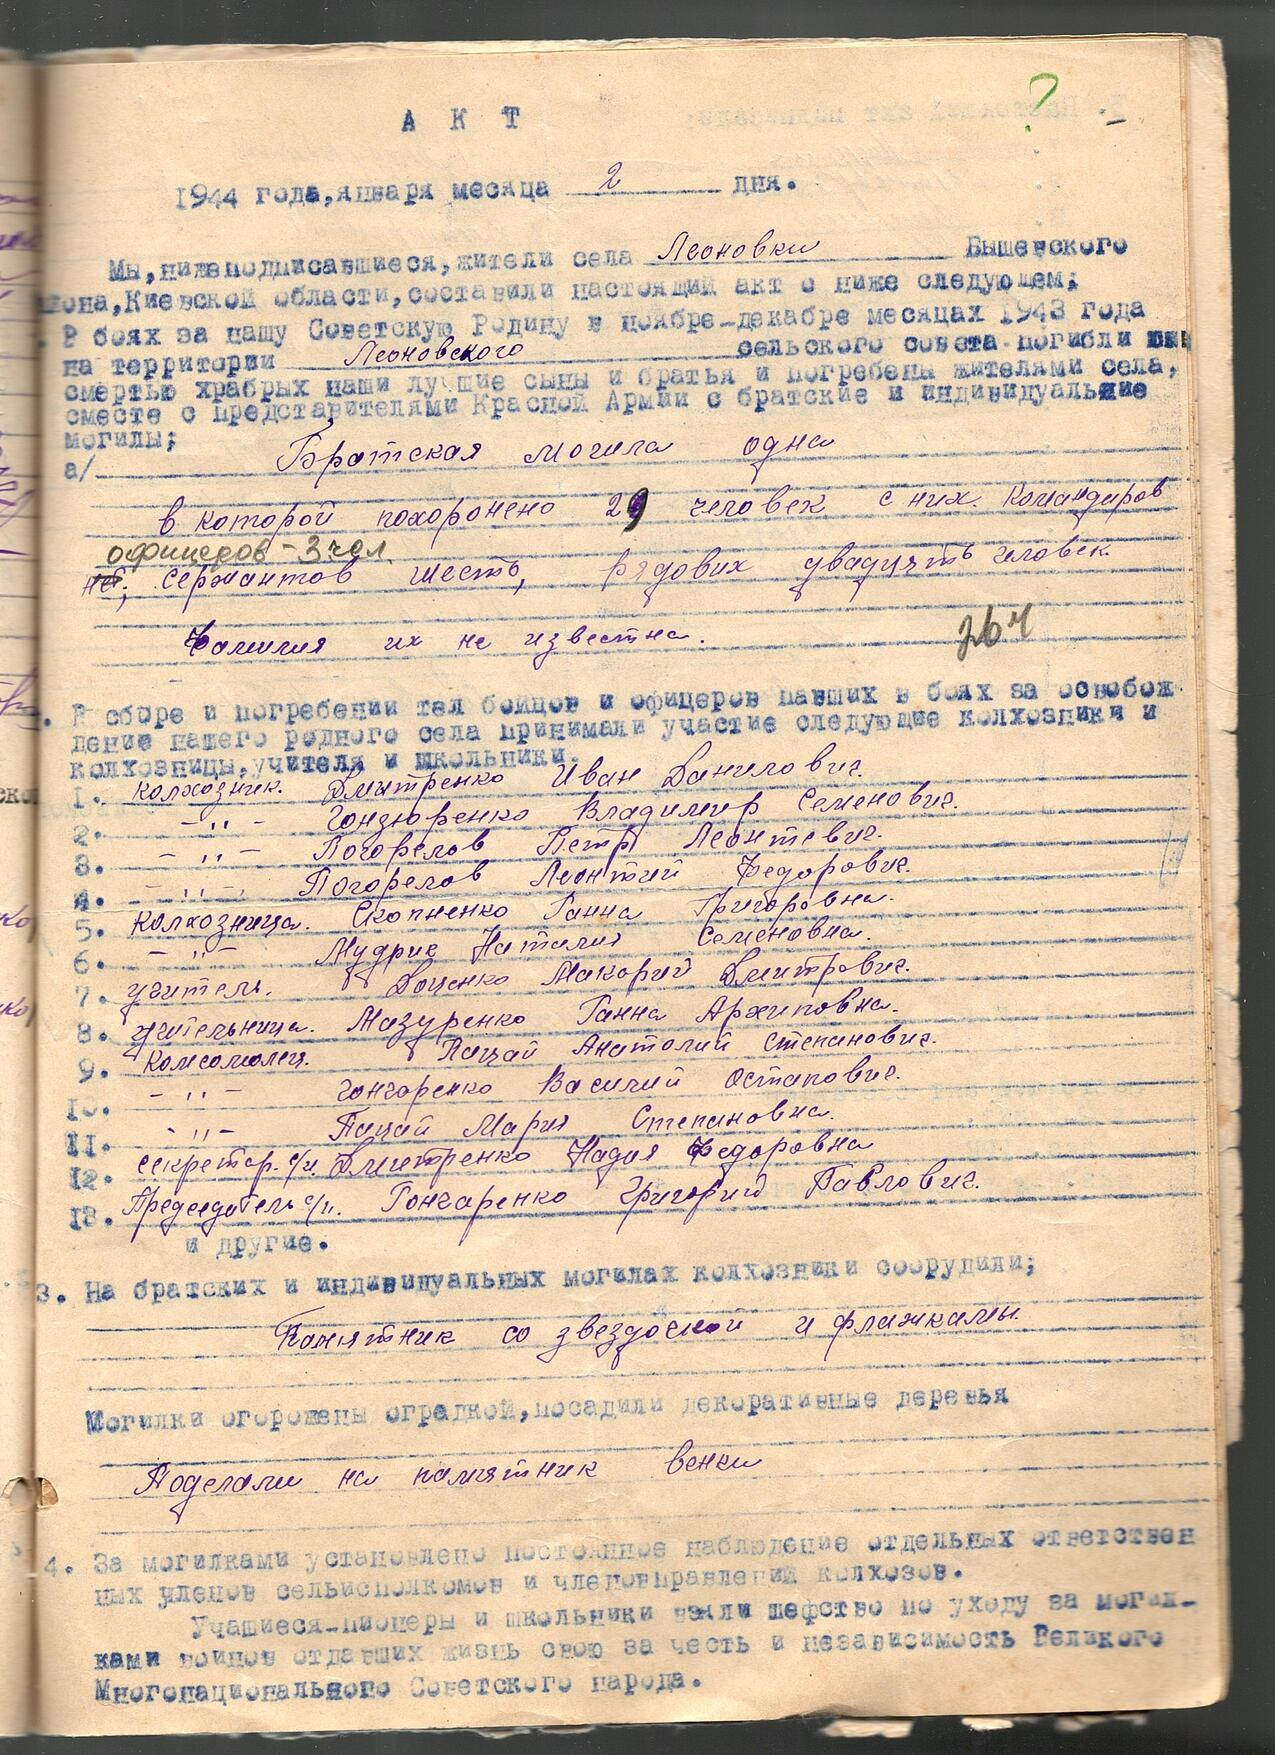 ?
А К Т
1944 года, января месяца 2 дня.
Мы, нижеподписавшиеся, жители села Леоновки Бышевского
она, Киевской области, составили настоящий акт о ниже следующем;
. В боях за нашу Советскую Родину в ноябре-декабре месяцах 1943 года
на территории Леоновского сельского совета погибли
смертью храбрых наши лучшие сыны и братья и погребены жителями села,
сместе с представителями Красной Армии с братские и индивидуальные
могилы;
а/ Братская могила одна
в которой похоронено 29 человек с них командиров
офицеров - 3 чел
нет, сержантов шесть, рядових двадцять человек
Фамилия их не известна.
. В сборе и погребении тел бойцов и офицеров павших в боях за освобож
дение нашего родного села принимали участие следующие колхозники и
колхозницы, учителя и школьники.
1. колхозник. Дмитренко Иван Данилович.
2. -"- Гонзюренко Владимир Семенович.
3. -"- Погорелов Петр Леонтевич.
4. -"- Погорелов Леонтий Федорович.
5. колхозница. Скопненко Ганна Григоровна.
6. -"- Мудрис Наталия Семеновна.
7. учитель. Доценко Макарий Дмитрович.
8. учительница. Мазуренко Ганна Архиповна.
9. Комсомолец. Пацай Анатолий Степанович.
10. -"- Гончаренко Василий Остапович.
11. -"- Пацай Мария Степановна.
12. секретар. с/и. Дмитренко Надия Федоровна
13. Председатель с/и. Гончаренко Григорий Павлович.
и другие.
3. На братских и индивинуальных могилах колхозники соорудили;
Памятник со звездоской и флажкамы.
Могилки огорожены оградкой, посадили декоративные деревья
Поделали на памятник венки
4. За могилками установлено постоянное наблюдение отдельных ответствен
ных членов сельисполкомов и членовправлений колхозов.
Учащиеся-пионеры и школьники взяли шефство по уходу за могил-
ками воинов отдавших жизнь свою за честь и независимость Великого
Многонационального Советского народа.